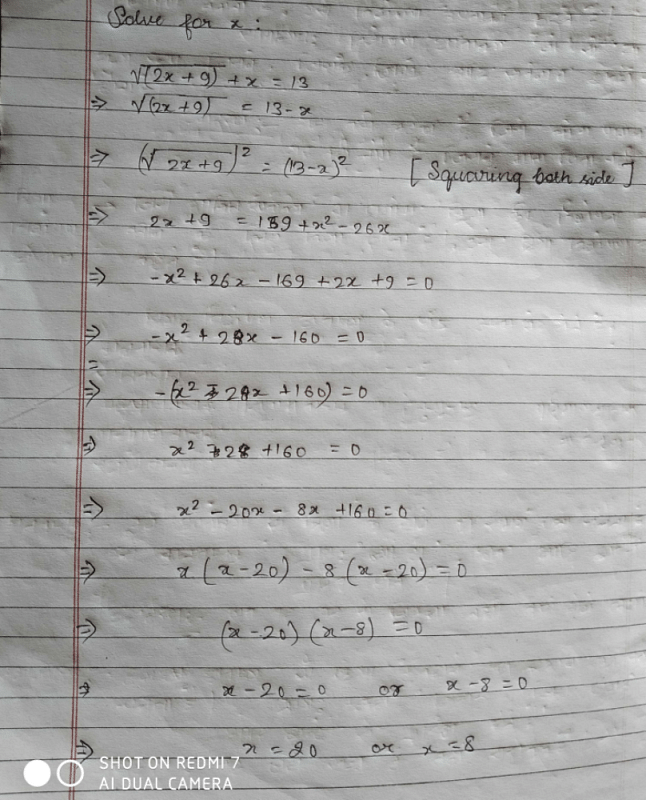 Solve for x :
√(2x + 9) + x = 13
⇒ √(2x + 9) = 13 - x
⇒ (√2x + 9)² = (13 - x)² [Squaring both side]
⇒ 2x + 9 = 169 + x² - 26x
⇒ -x² + 26x - 169 + 2x + 9 = 0
⇒ -x² + 28x - 160 = 0
=
⇒ -(x² - 28x + 160) = 0
⇒ x² - 28 + 160 = 0
⇒ x² - 20x - 8x + 160 = 0
⇒ x (x - 20) - 8 (x - 20) = 0
⇒ (x - 20) (x - 8) = 0
⇒ x - 20 = 0 or x - 8 = 0
⇒ x = 20 or x = 8
SHOT ON REDMI 7
AI DUAL CAMERA